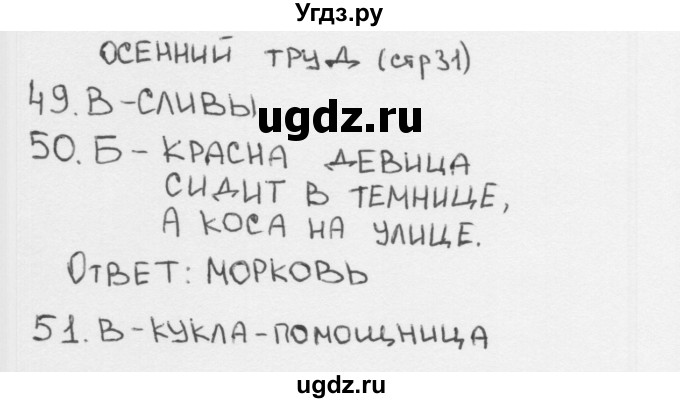 Угдз.ру
ОСЕННИЙ ТРУД (стр31)
49. В - СЛИВЫ
ugdz.ru
50. Б - КРАСНА ДЕВИЦА
СИДИТ В ТЕМНИЦЕ,
А КОСА НА УЛИЦЕ.
ОТВЕТ: МОРКОВЬ
51. В - КУКЛА - ПОМОЩНИЦА
ugdz.ru